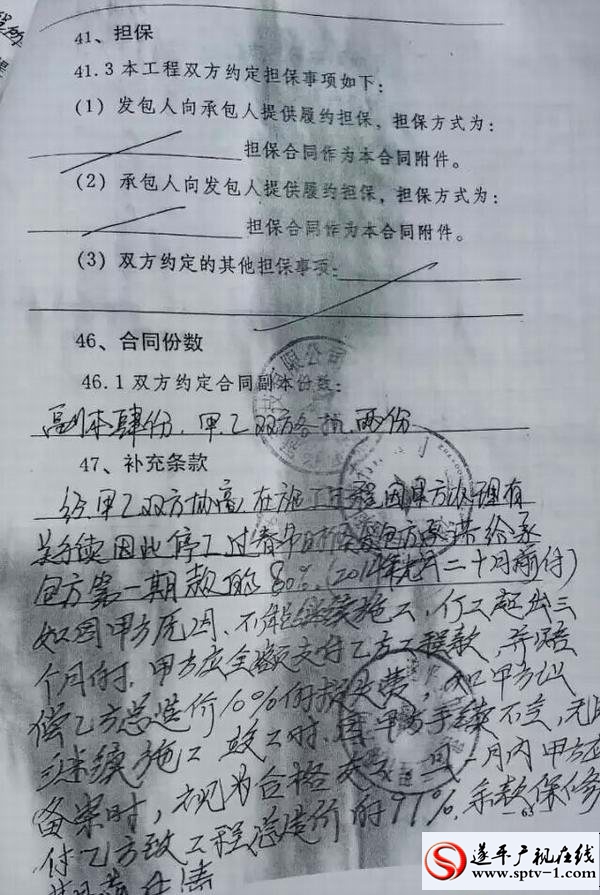 41、担保
41.3本工程双方约定担保事项如下：
(1) 发包人向承包人提供履约担保，担保方式为：
担保合同作为本合同附件。
(2) 承包人向发包人提供履约担保，担保方式为：
担保合同作为本合同附件。
(3) 双方约定的其他担保事项：
46、合同份数
46.1双方约定合同副本份数：
副本肆份，甲乙双方各执两份
47、补充条款
经甲乙双方协商，在施工过程因甲方办理有
关手续因此停工过春年时发包方承诺给承
包方第一期款的80%。(2014年元月二十日前付)
如因甲方原因、不能继续施工，停工超出三
个月时，甲方应全额支付乙方工程款，并赔
偿乙方总造价10%的损失费，如甲方
继续施工 竣工时，因甲方手续不全，无
备案时，视为合格 一月内甲方应
付乙方致工程总造价的97%，余款保修
-63-
遂平广视在线
www.sptv-1.com